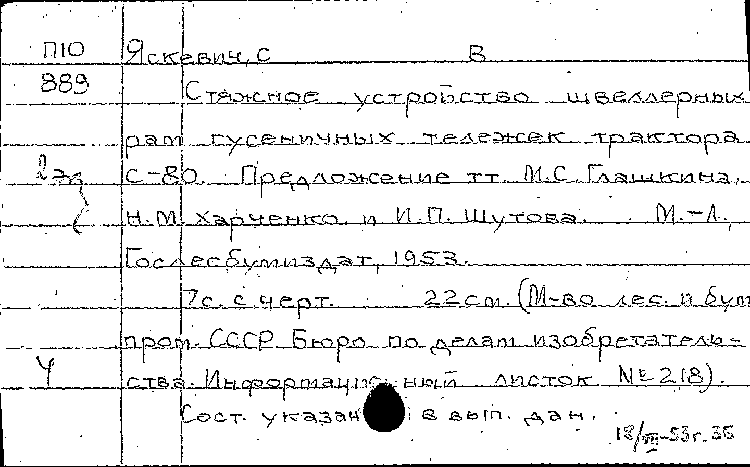 П10 Яскевич, С В
889 Стяжное устройство швеллерных
рам гусеничных тележек трактора
2 эк С-80. Предложение тт. М.С. Глашкина,
Н.М. Харченко и И.П. Шутова. М.-Л.,
Гослесбумиздат, 1953.
7с. с черт. 22 см. (М-во лес. и бум
пром. СССР. Бюро по делам изобретатель-
Ч ства. Информационный листок № 2(8).
Сост. указан в вып. дан.
18/VII-53г. 35